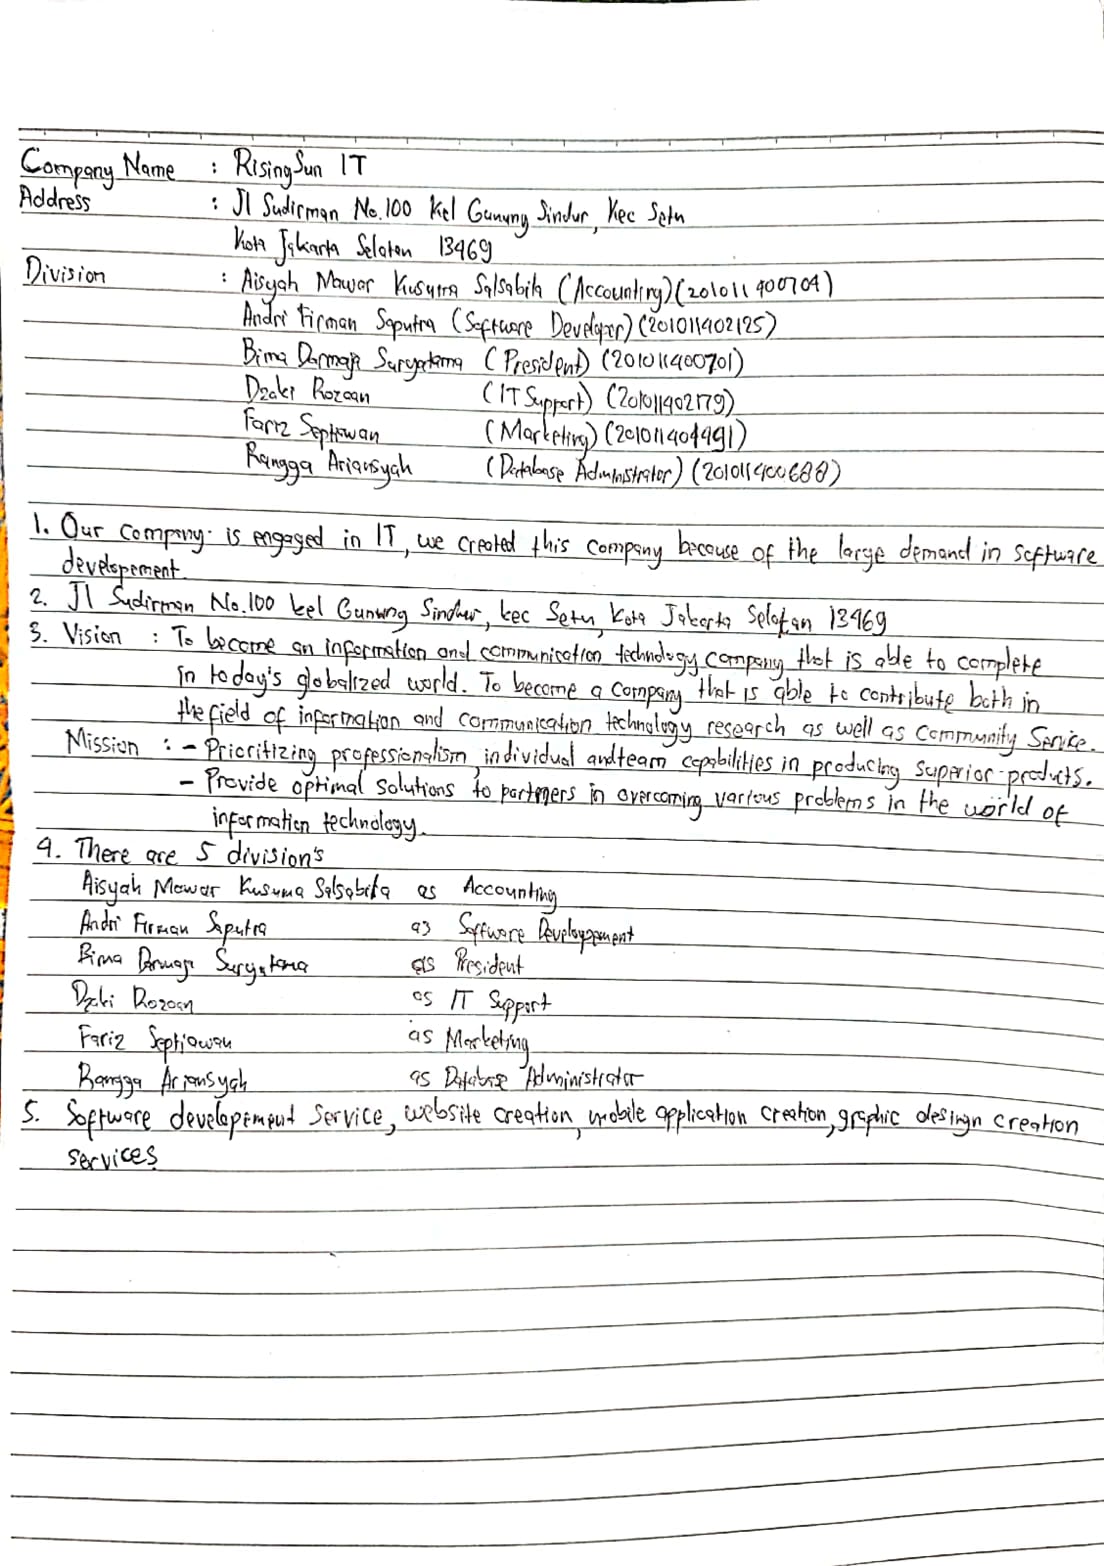 Company Name : RisingSun IT
Address : Jl Sudirman No.100 Kel Gunung Sindur, Kec Setu
Kota Jakarta Selatan 13469
Division : Aisyah Mawar Kusuma Salsabila (Accounting) (201011400704)
Andri Firman Saputra (Software Developer) (201011402125)
Bima Darmaji Suryatama (President) (201011400701)
Dzaki Rozaan (IT Support) (201011402179)
Fariz Septiawan (Marketing) (201011404491)
Rangga Ariansyah (Database Administrator) (201011400688)
1. Our company is engaged in IT, we created this company because of the large demand in software
developement.
2. Jl Sudirman No.100 kel Gunung Sindur, kec Setu, Kota Jakarta Selatan 13469
3. Vision : To become an information and communication technology company that is able to complete
in today's globalized world. To become a company that is able to contribute both in
the field of information and communication technology research as well as Community Service.
Mission : - Prioritizing professionalism, individual and team capabilities in producing superior products.
- Provide optimal solutions to partners in overcoming various problems in the world of
information technology.
4. There are 5 division's
Aisyah Mawar Kusuma Salsabila as Accounting
Andri Firman Saputra as Software Developpment
Bima Darmaji Suryatama as President
Dzaki Rozaan as IT Support
Fariz Septiawan as Marketing
Rangga Ariansyah as Database Administrator
5. Software development service, website creation, mobile application creation, graphic desingn creation
services